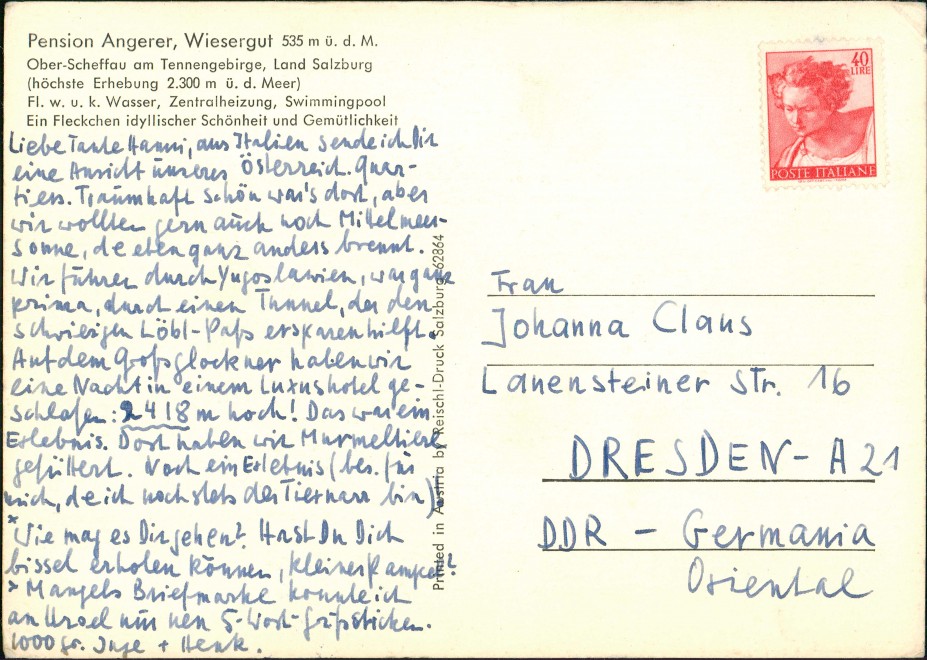 Pension Angerer, Wiesergut 535 m ü. d. M.
Ober-Scheffau am Tennengebirge, Land Salzburg
(höchste Erhebung 2.300 m ü. d. Meer)
Fl. w. u. k. Wasser, Zentralheizung, Swimmingpool
Ein Fleckchen idyllischer Schönheit und Gemütlichkeit
Liebe Tante Hanni, aus Italien sende ich Dir
eine Ansicht unseres Österreich. Quar-
tiers. Traumhaft schön war's dort, aber
wir wollten gern auch noch Mittelmeer-
sonne, de eben ganz anders brennt.
Wir fuhren durch Yugoslawien, war ganz
prima, durch einen Tunnel, der den
schwierigen Löbl-Paß ersparen hilft.
Auf dem Großglockner haben wir
eine Nacht in einem Luxushotel ge-
schlafen: 2418 m hoch! Das war ein
Erlebnis. Dort haben wir Murmeltiere
gefüttert. Noch ein Erlebnis (bes. für
mich, de ich noch stets der Tiernarr bin)!
* Wie mag es Dir gehen? Hast Du Dich
bissel erholen können, kleiner Kamper?
* Mangels Briefmarke konnte ich
an Ursel nur nen 5-Wort-Gruß schicken.
1000 gr. Inge + Henk.
Printed in Austria by Reischl-Druck Salzburg 62864
40
LIRE
POSTE ITALIANE
Frau
Johanna Claus
Lauensteiner Str. 16
DRESDEN - A 21
DDR - Germania
Oriental